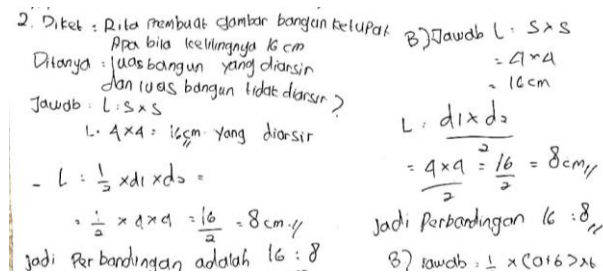 2. Diket : Rita membuat gambar bangun ketupat
Apa bila kelilingnya 16 cm
Ditanya : luas bangun yang diarsir
dan luas bangun tidak diarsir ?
Jawab : L : S x S
L : 4 x 4 = 16 cm yang diarsir
- L : 1/2 x d1 x d2 =
= 1/2 x 4 x 4 = 16/2 = 8 cm //
Jadi Perbandingan adalah 16 : 8
B) Jawab L : S x S
= 4 x 4
= 16 cm
L : d1 x d2 / 2
= 4 x 4 / 2 = 16 / 2 = 8 cm //
Jadi Perbandingan 16 : 8 //
B) Jawab : 1/2 x